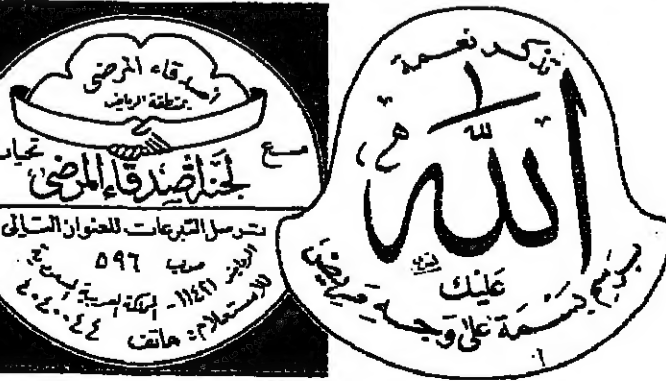 تذكر نعمة
الله
عليك
برسم بسمة على وجه مريض
أصدقاء المرضى
بمنطقة الرياض
مع
تحيات
لجنة أصدقاء المرضى
ترسل التبرعات للعنوان التالي
ص.ب ٥٩٦
الرياض ١١٤٢١ - المملكة العربية السعودية
للاستعلام: هاتف ٤٠٤٠٠٤٤